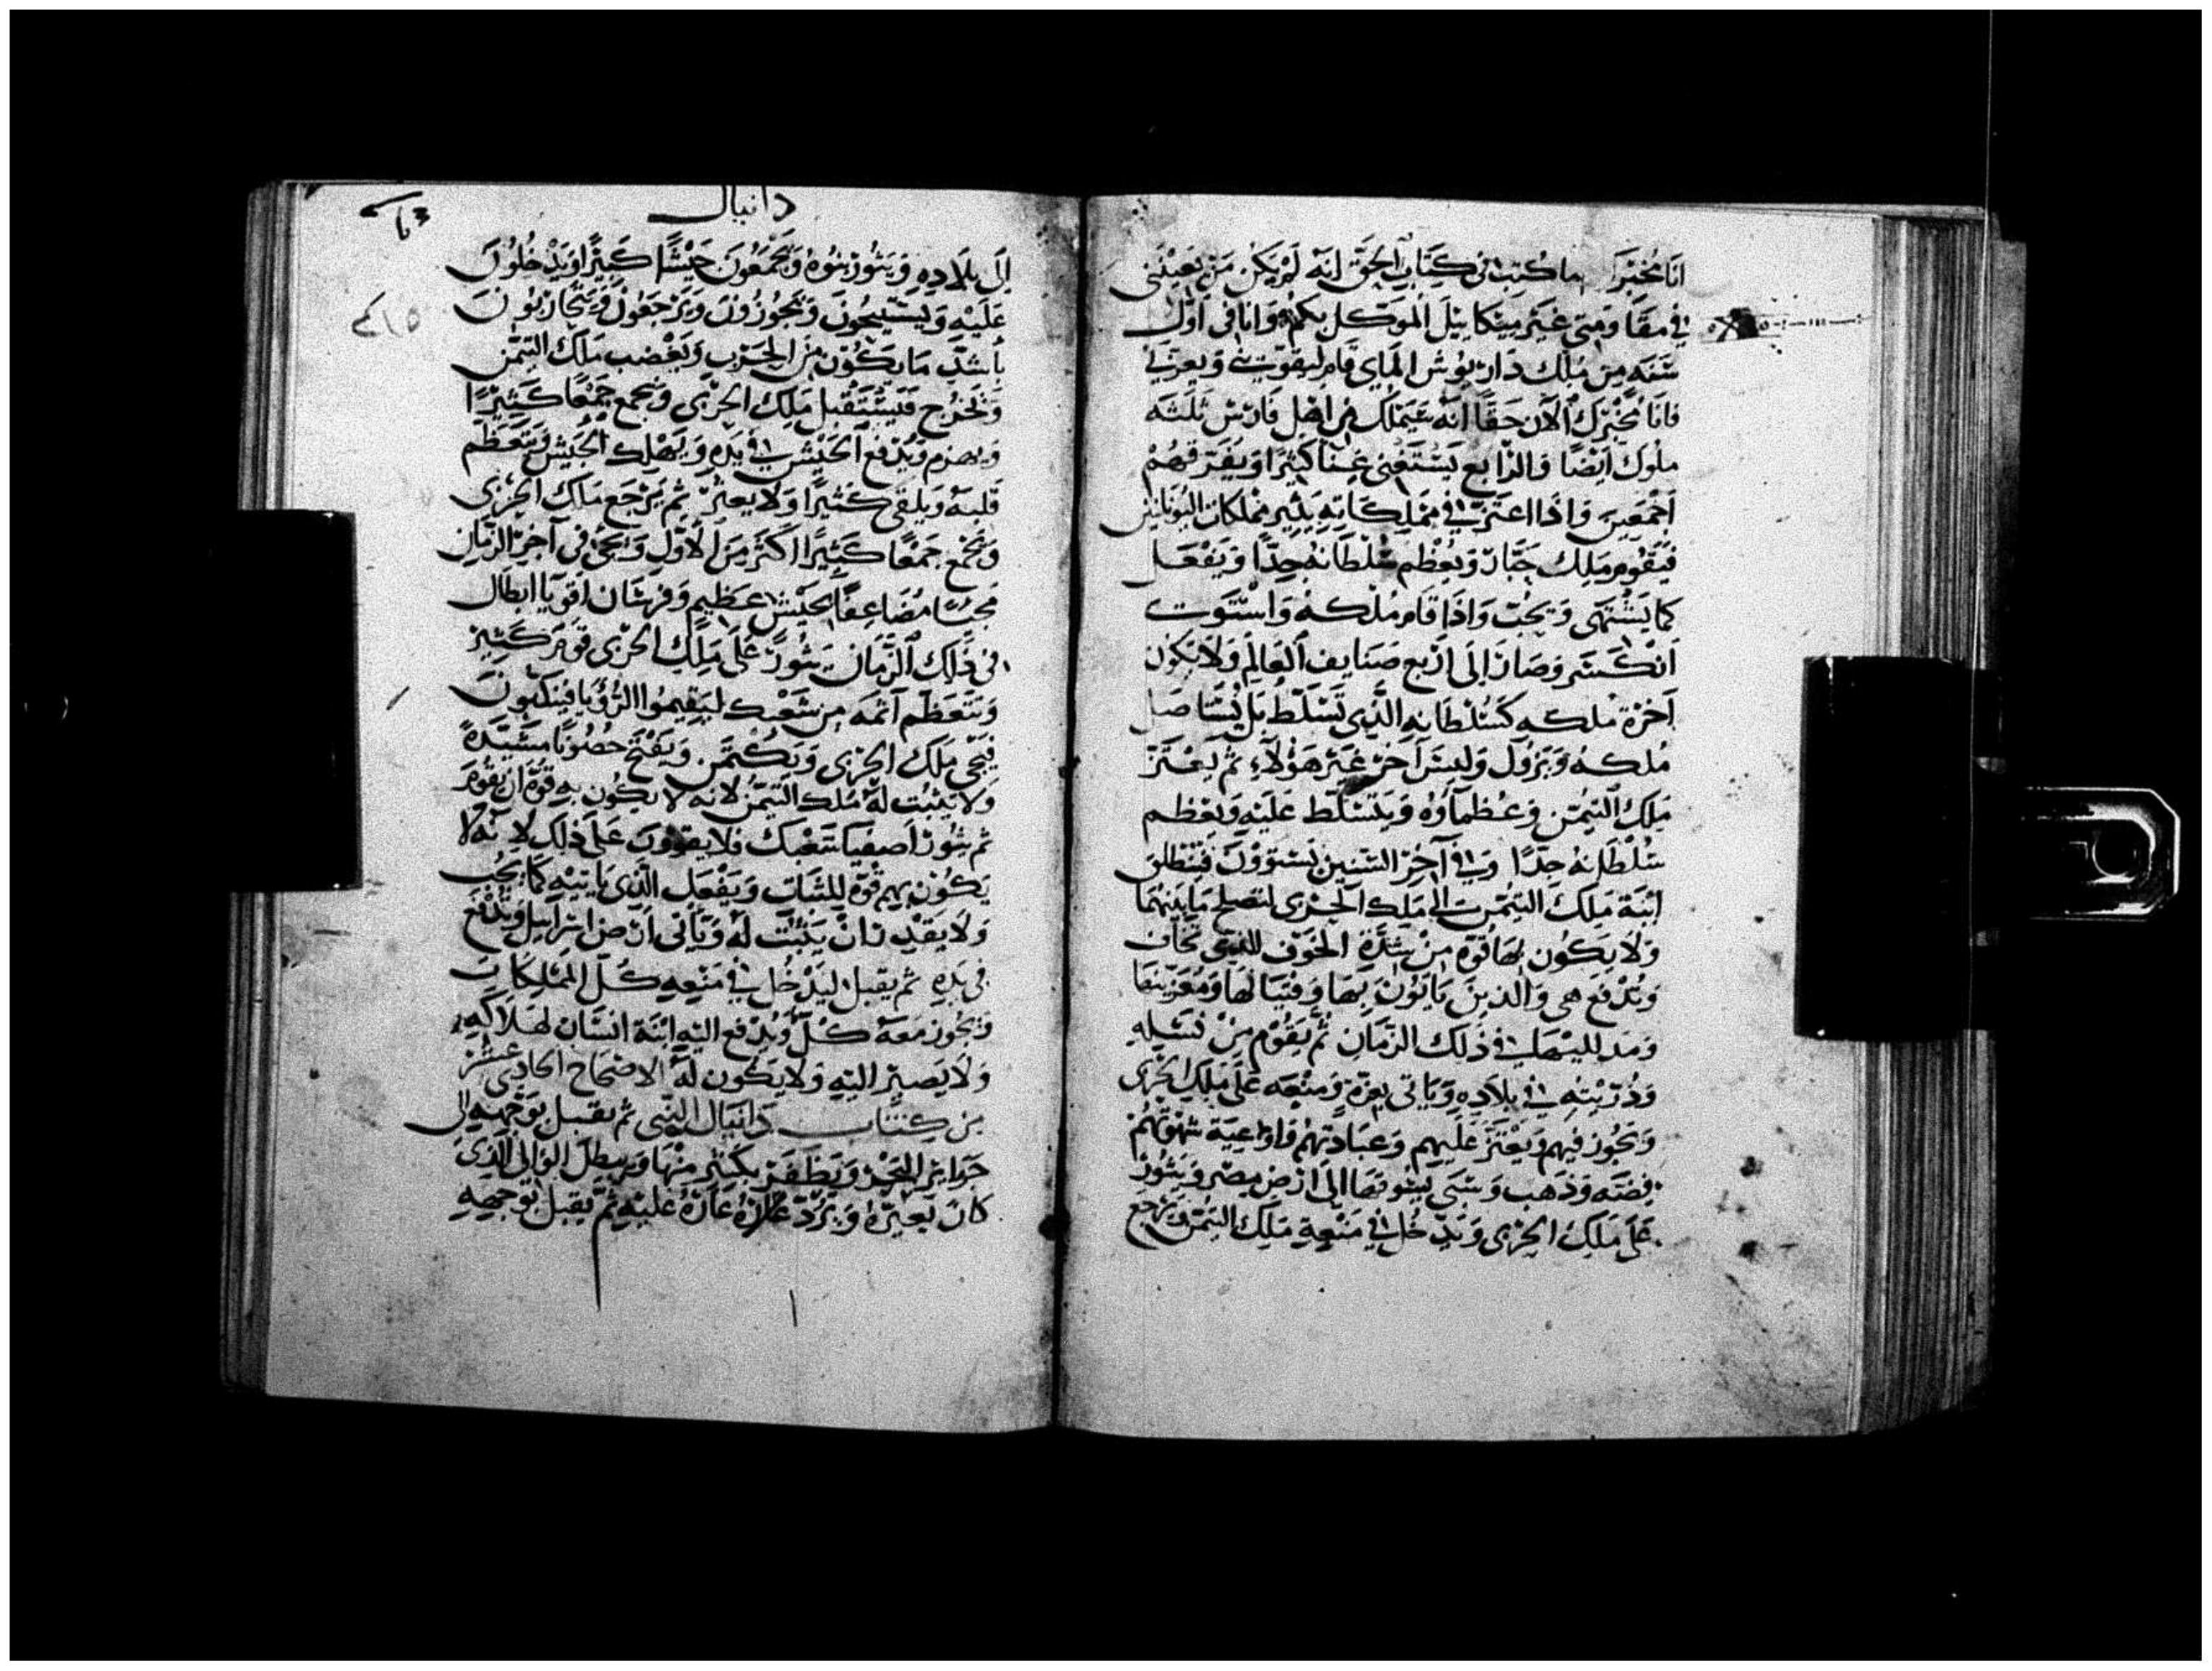 انا مخبرك ما كتب في كتاب الحق انه لم يكن من يعينني
في مقاومتي غير ميكاييل الموكل بكم وانا في اول
سنه من ملك داريوش الماي قام ليقويني ويعزني
فانا مخبرك الان حقا انه سيملك من اهل فارس ثلثه
ملوك ايضا والرابع يستغني غنا كثيرا ويفرقهم
اجمعين واذا اعتز في مملكاته يثير مملكات اليونانين
فيقوم ملك جبار ويعظم سلطانه جدا ويفعل
كما يشتهي ويحب واذا قام ملكه واستوت
انكسر وصار الى اربع صنايف العالم ولا يكون
اخرة ملكه كسلطانه الذي تسلط بل يستاصل
ملكه ويزول وليس آخر غير هولاء ثم يعتز
ملك التيمن وعظماؤه ويتسلط عليه ويعظم
سلطانه جدا وفي آخر السنين يستوون فتنطلق
ابنة ملك التيمن الى ملك الجربى لتصلح ما بينهما
ولا يكون لها قوة من شدة الخوف الذي تخاف
وتدفع هي والذين ياتون بها وفتياتها ومعزينها
في ذلك الزمان ثم يقوم من نسله
وذريته في بلاده وياتي بعزة ومنعه على ملك الجربى
ويجوز فيهم ويعتز عليهم وعبادتهم واواعية شهوتهم
فضه وذهب وسبي يسوقها الى ارض مصر ويثور
على ملك الجربى ويدخل في منعة ملك التيمن ويرجع
دانيال
الى بلاده ويثور بنوه ويجمعون جيشا كبيرا ويدخلون
عليه ويستبيحون ويجوزون ويرجعون ويتحاربون
باشد ما يكون من الحرب ويغضب ملك التيمن
ويخرج فيستقبل ملك الجربى ويجمع جمعا كثيرا
ويهزم ويدفع الجيش في يده ويهلك الجيش ويتعظم
قلبه ويلقى كثيرا ولا يعثر ثم يرجع ملك الجربى
ويجمع جمعا كثيرا اكثر من الاول ويجي في آخر الزمان
مجيا مضاعفا بجيش عظيم وفرسان اقويا ابطال
في ذلك الزمان يثور على ملك الجربى قوم كثير
ويتعظم آثمه من شعبك ليقيموا الرويا فينكبون
فيجي ملك الجربى ويكتمن ويفتح حصونا مشيدة
ولا يثبت له ملك التيمن لانه لا يكون به قوة ان يقوم
ثم يثور اصفيا شعبك فلا يقوون على ذلك لانه لا
يكون بهم قوة للثبات ويفعل الذي ياتيه كما يحب
ولا يقدر ان يثبت له وياتي ارض اسرايل وتدفع
في يده ثم يقبل ليدخل في منعه كل المملكات
ويجوز معه كل ويدفع اليه ابنة انسان لهلاكه
ولا يصير اليه ولا يكون له الاصحاح الحادي عشر
من كتاب دانيال النبي ثم يقبل بوجهه الى
جزاير البحر ويظفر بكثير منها ويبطل الوالي الذي
كان يعيره ويرد عاره عليه ثم يقبل بوجهه